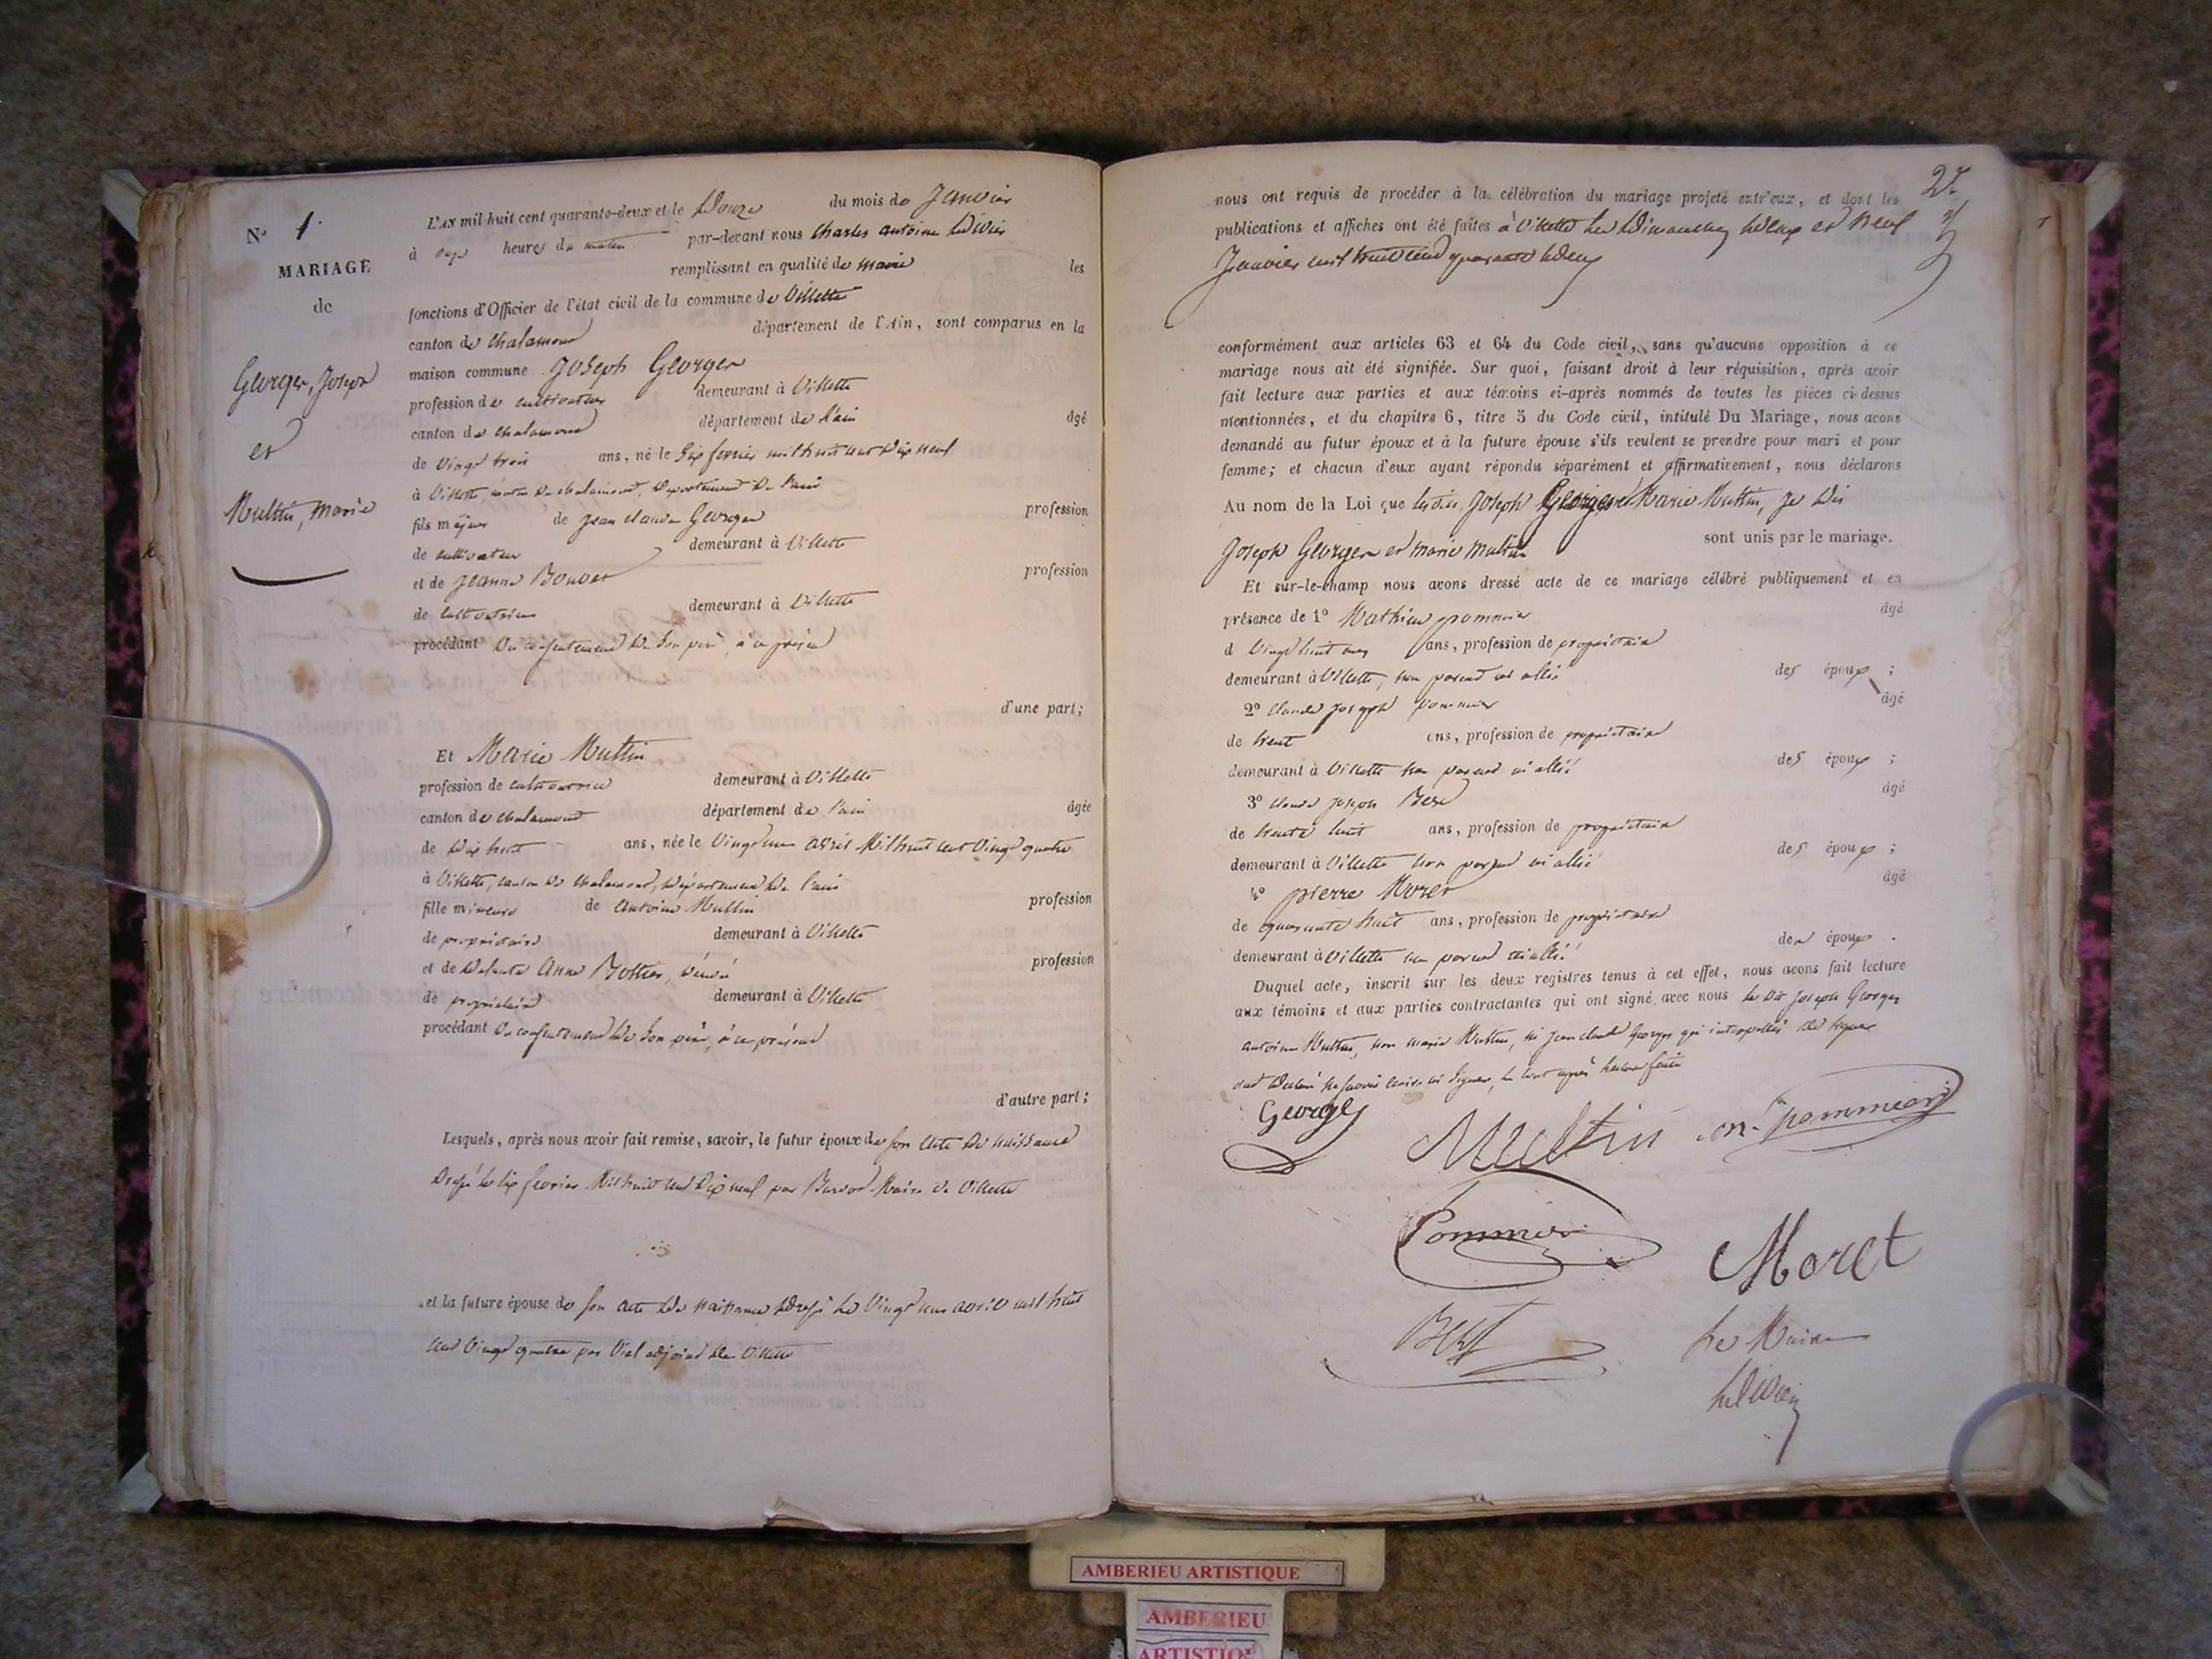 N° 1.
MARIAGE
de
Georges, Joseph
et
Muttin, Marie
L'AN mil huit cent quarante-deux et le Douze du mois de Janvier
à onze heures du matin par-devant nous Charles antoine
remplissant en qualité de maire les
fonctions d'Officier de l'état civil de la commune de Villette
canton de chalamont département de l'Ain, sont comparus en la
maison commune Joseph Georges
profession de cultivateur demeurant à Villette
canton de chalamont département de l'ain âgé
de vingt trois ans, né le six fevrier mil huit cent dix neuf
à Villette, canton de chalamont, département de l'ain
fils majeur de jean claude Georges profession
de cultivateur demeurant à Villette
et de jeanne Bouvet profession
de cultivatrice demeurant à Villette
procédant du consentement de son père, à ce présent
d'une part;
Et Marie Muttin
profession de cultivatrice demeurant à Villette
canton de chalamont département de l'ain âgée
de dix huit ans, née le vingt un avril mil huit cent vingt quatre
à Villette, canton de chalamont, département de l'ain
fille mineure de antoine Muttin profession
de propriétaire demeurant à Villette
et de défunte anne profession
de propriétaire demeurant à Villette
procédant du consentement de son père, à ce présent
d'autre part;
Lesquels, après nous avoir fait remise, savoir, le futur époux de son acte de naissance
dressé le six fevrier mil huit cent dix neuf par maire de Villette
et la future épouse de son acte de naissance dressé le vingt un avril mil huit
cent vingt quatre par Vial adjoint de Villette
2
nous ont requis de procéder à la célébration du mariage projeté entr'eux, et dont les
publications et affiches ont été faites à Villette les dimanches deux et neuf
Janvier mil huit cent quarante deux
conformément aux articles 63 et 64 du Code civil, sans qu'aucune opposition à ce
mariage nous ait été signifiée. Sur quoi, faisant droit à leur réquisition, après avoir
fait lecture aux parties et aux témoins ci-après nommés de toutes les pièces ci-dessus
mentionnées, et du chapitre 6, titre 5 du Code civil, intitulé Du Mariage, nous avons
demandé au futur époux et à la future épouse s'ils veulent se prendre pour mari et pour
femme; et chacun d'eux ayant répondu séparément et affirmativement, nous déclarons
Au nom de la Loi que lesdits Joseph Georges et Marie Muttin, je dis
Joseph Georges et marie muttin sont unis par le mariage.
Et sur-le-champ nous avons dressé acte de ce mariage célébré publiquement et en
présence de 1° Mathieu pommier âgé
d vingt huit ans, profession de propriétaire
demeurant à Villette, non parent ni allié des époux ;
2° claude joseph pommier âgé
de trent ans, profession de propriétaire
demeurant à Villette non parent ni allié des époux ;
3° claude joseph âgé
de trente huit ans, profession de propriétaire
demeurant à Villette non parent ni allié des époux ;
4° pierre Moret âgé
de quarante huit ans, profession de propriétaire
demeurant à Villette non parent ni allié des époux .
Duquel acte, inscrit sur les deux registres tenus à cet effet, nous avons fait lecture
aux témoins et aux parties contractantes qui ont signé avec nous le dit joseph Georges
antoine Muttin, non marie Muttin, ni jean claude Georges qui interpellés de signer
ont déclaré ne savoir écrire ni signer, le tout après lecture faite
Georges
Muttin
m. pommier
Pommier
Moret
Le Maire
AMBERIEU ARTISTIQUE
AMBERIEU
ARTISTIQ